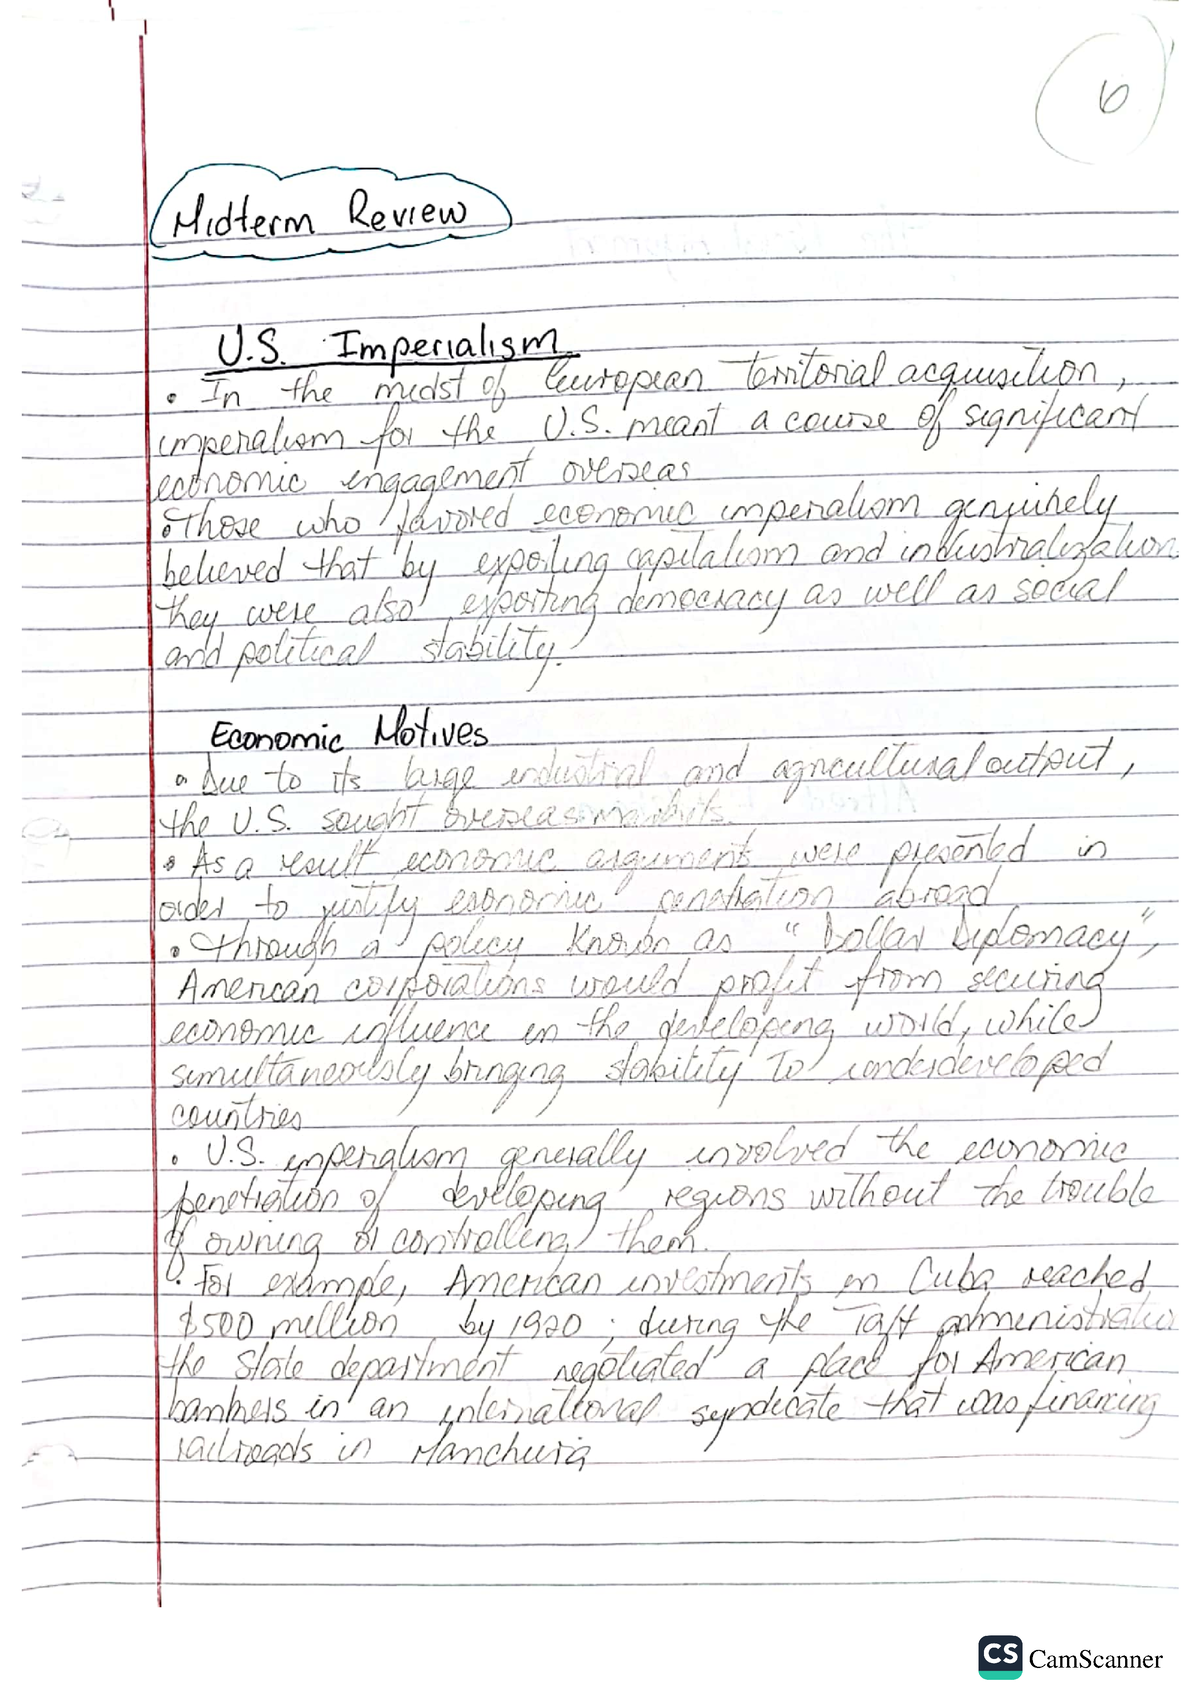 6
Midterm Review
U.S. Imperialism
• In the midst of European territorial acquisition,
imperalism for the U.S. meant a course of significant
economic engagement overseas
• Those who favored economic imperialism genuinely
believed that by exporting capitalism and industrialization
they were also exporting democracy as well as social
and political stability.
Economic Motives
• Due to its large industrial and agricultural output,
the U.S. sought overseas markets.
• As a result economic arguments were presented in
order to justify economic penetration abroad
• Through a policy known as "Dollar Diplomacy",
American corporations would profit from securing
economic influence in the developing world, while
simultaneously bringing stability to underdeveloped
countries
• U.S. imperialism generally involved the economic
penetration of developing regions without the trouble
of owning or controlling them.
• For example, American investments in Cuba reached
$500 million by 1920; during the Taft administratio
the State department negotiated a place for American
bankers in an international syndicate that was financing
railroads in Manchuria
CS CamScanner